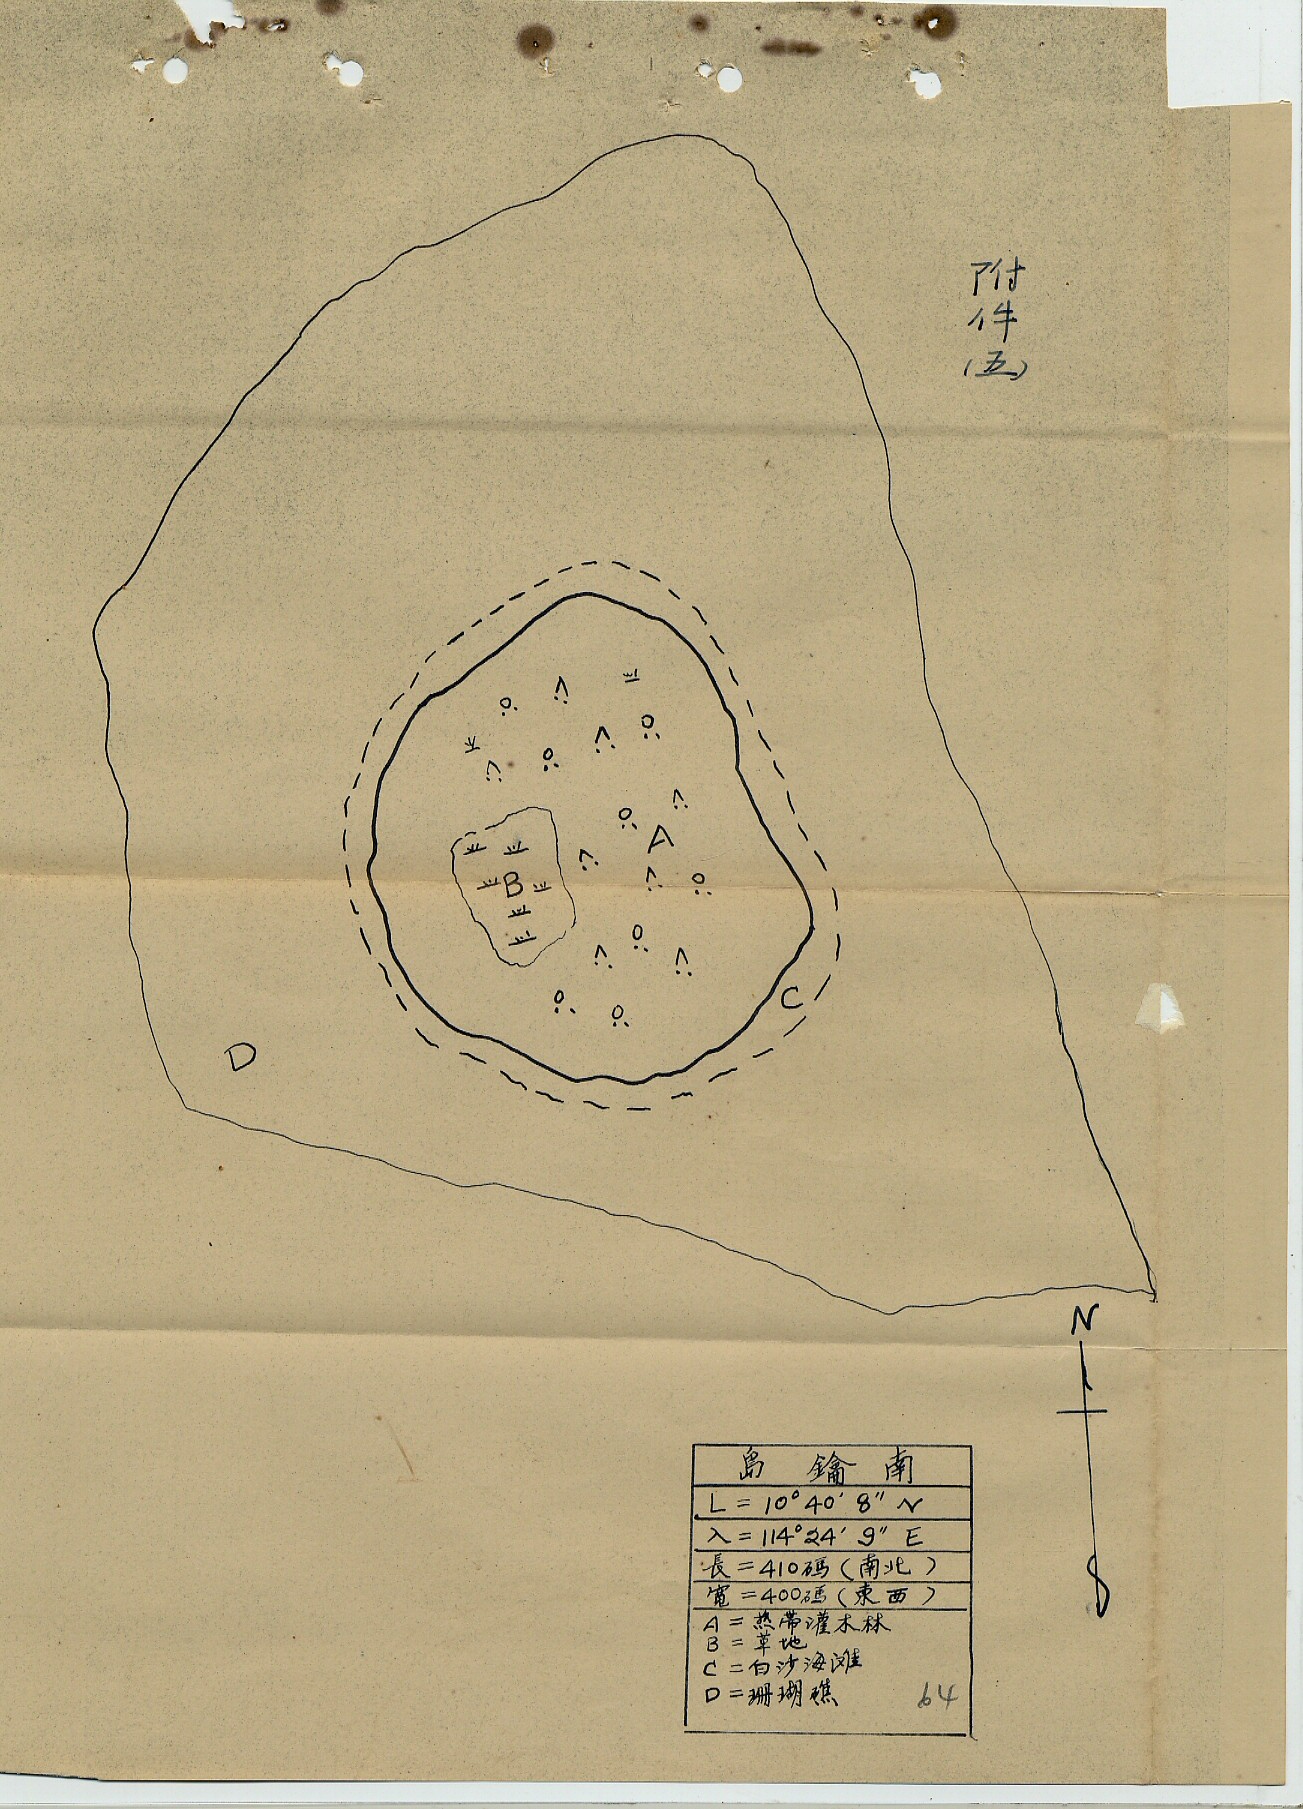 附
件
(五)
A
B
C
D
N
島鑰南
L = 10° 40' 8" N
入 = 114° 24' 9" E
長 = 410碼(南北)
寬 = 400碼(東西)
A = 熱帶灌木林
B = 草地
C = 白沙海灘
D = 珊瑚礁
64